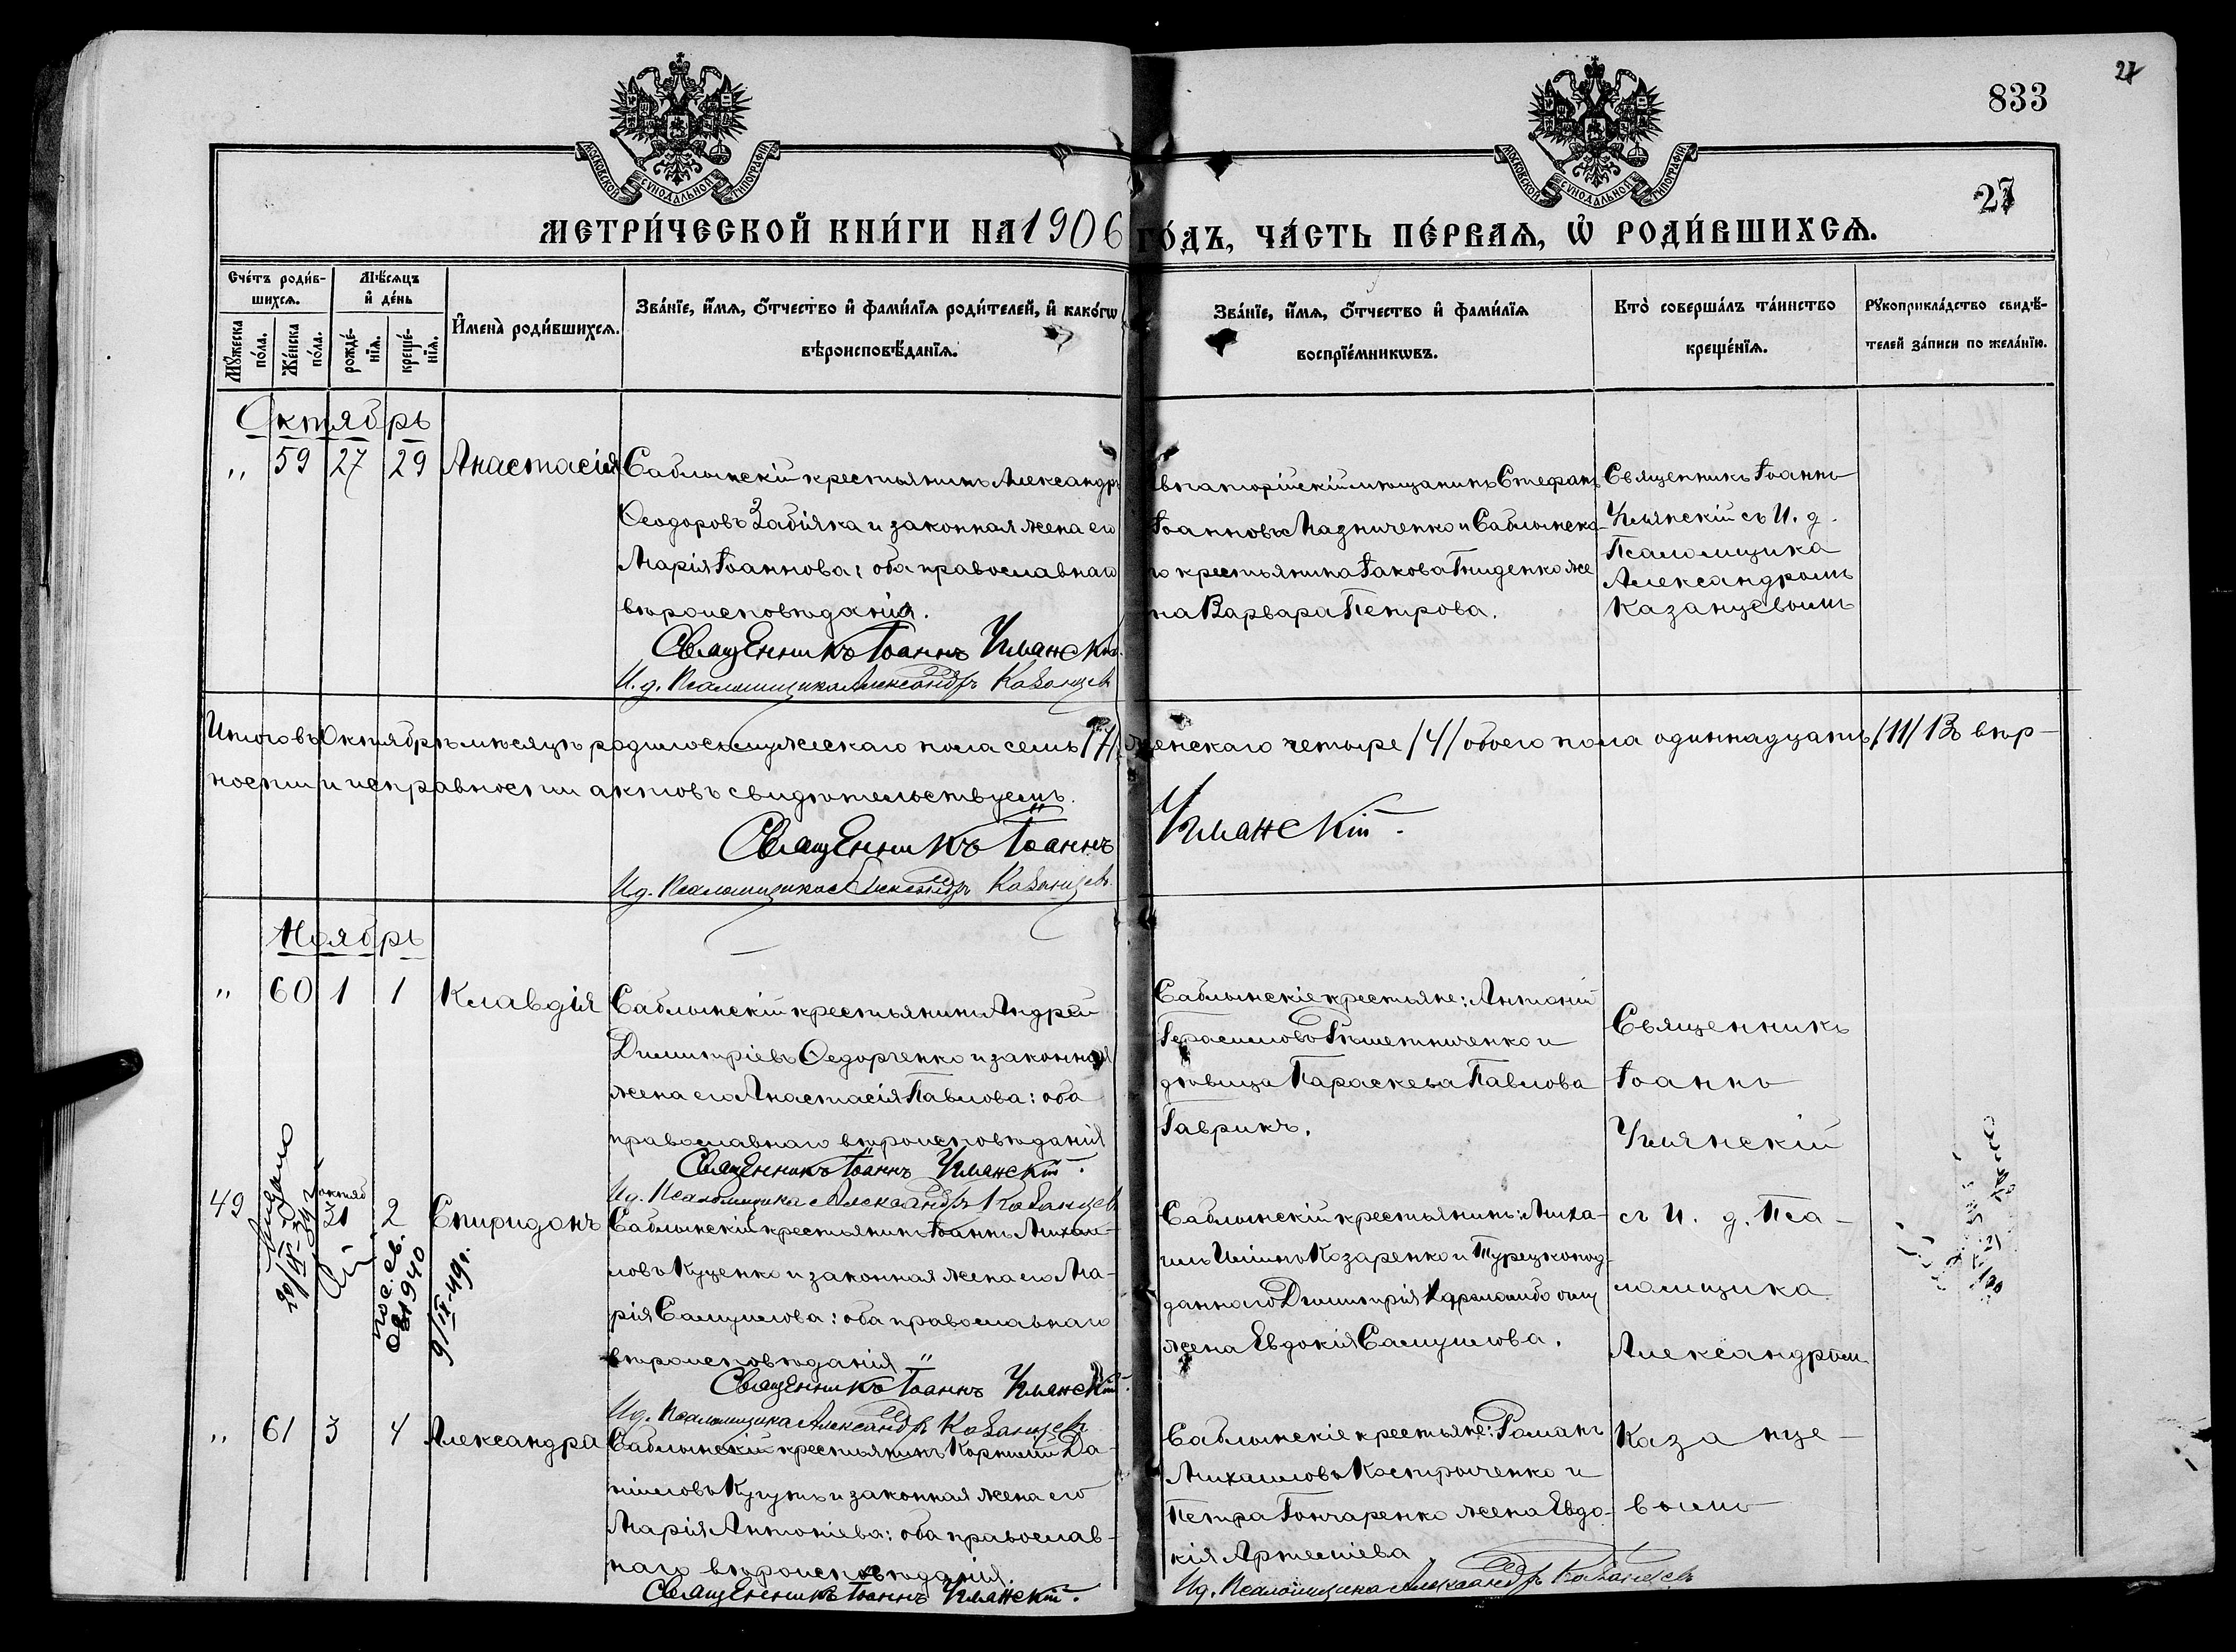 27
833
МОСКОВСКОЙ СѴНОДАЛЬНОЙ ТИПОГРАФІИ
МОСКОВСКОЙ СѴНОДАЛЬНОЙ ТИПОГРАФІИ
27
МЕТРИ́ЧЕСКОЙ КНИ́ГИ НА 1906 ГО́ДЪ, ЧА́СТЬ ПЕ́РВАѦ, Ѡ҆ РОДИ́ВШИХСѦ.
Сче́тъ роди́в-
шихсѧ.
Мꙋ́жеска по́ла.
Же́нска по́ла.
Мѣ́сѧцъ
и҆ де́нь
рожде́-
нїѧ.
креще́-
нїѧ.
И҆мена̀ роди́вшихсѧ.
Зва́нїе, и҆́мѧ, ѻ҆́тчество и҆ фами́лїѧ роди́телей, и҆ како́гѡ
вѣроисповѣ́данїѧ.
Зва́нїе, и҆́мѧ, ѻ҆́тчество и҆ фами́лїѧ
воспрїе́мникѡвъ.
Кто̀ соверша́лъ та́инство
креще́нїѧ.
Рꙋкоприкла́дство свидѣ́-
телей за́писи по жела́нїю.
Октябрь
„ 59 27 29 Анастасія
Саблынскій крестьянинъ Александръ
Ѳеодоровъ Забіяка и законная жена его
Марія Іоаннова: оба православнаго
вѣроисповѣданія.
Священникъ Іоаннъ Уманскій.
И. д. Псаломщика Александръ Казанцевъ
Евпаторійскій мѣщанинъ Стефанъ
Іоанновъ Мазниченко и Саблынска-
го крестьянина Іакова Гниденко же
на Варвара Петрова.
Священникъ Іоаннъ
Уманскій съ И. д.
Псаломщика
Александромъ
Казанцевымъ
Итого въ Октябрѣ мѣсяцѣ родилось мужескаго пола семь /7/ женскаго четыре /4/ обоего пола одиннадцать /11/ Въ вѣр-
ности и исправности актовъ свидѣтельствуемъ.
Священникъ Іоаннъ Уманскій.
И. д. Псаломщика Александръ Казанцевъ.
Ноябрь
„ 60 1 1 Клавдія
Саблынскій крестьянинъ Андрей
Димитріевъ Ѳедорченко и законная
жена его Анастасія Павлова: оба
православнаго вѣроисповѣданія
Священникъ Іоаннъ Уманскій.
И. д. Псаломщика Александръ Казанцевъ
Саблынскіе крестьяне: Антоній
Герасимовъ Рѣшетниченко и
дѣвица Параскева Павлова
Гаврикъ.
Священникъ
Іоаннъ
Уманскій
съ И. д. Пса-
ломщика
Александром
Казанце-
вымъ
49 октяб 31 2 Спиридонъ
Выдано
20/IV-34 г.
пос. св.
в 1940
9/IX-49г.
Саблынскій крестьянинъ Іоаннъ Михаи-
ловъ Куценко и законная жена его Ма-
рія Самуилова: оба православнаго
вѣроисповѣданія „
Священникъ Іоаннъ Уманскій.
И. д. Псаломщика Александръ Казанцевъ
Саблынскій крестьянинъ: Миха-
илъ Козаренко и Турецкопод-
даннаго Димитрія
жена Евдокія Самуилова.
„ 61 3 4 Александра
Саблынскій крестьянинъ Корнилій Да-
ніиловъ Кугутъ и законная жена его
Марія Антоніева: оба православ-
наго вѣроисповѣданія.
Священникъ Іоаннъ Уманскій.
Саблынскіе крестьяне: Романъ
Михаиловъ Костриченко и
Петра Гончаренко жена Евдо-
кія Артеміева
И. д. Псаломщика Александръ Казанцевъ